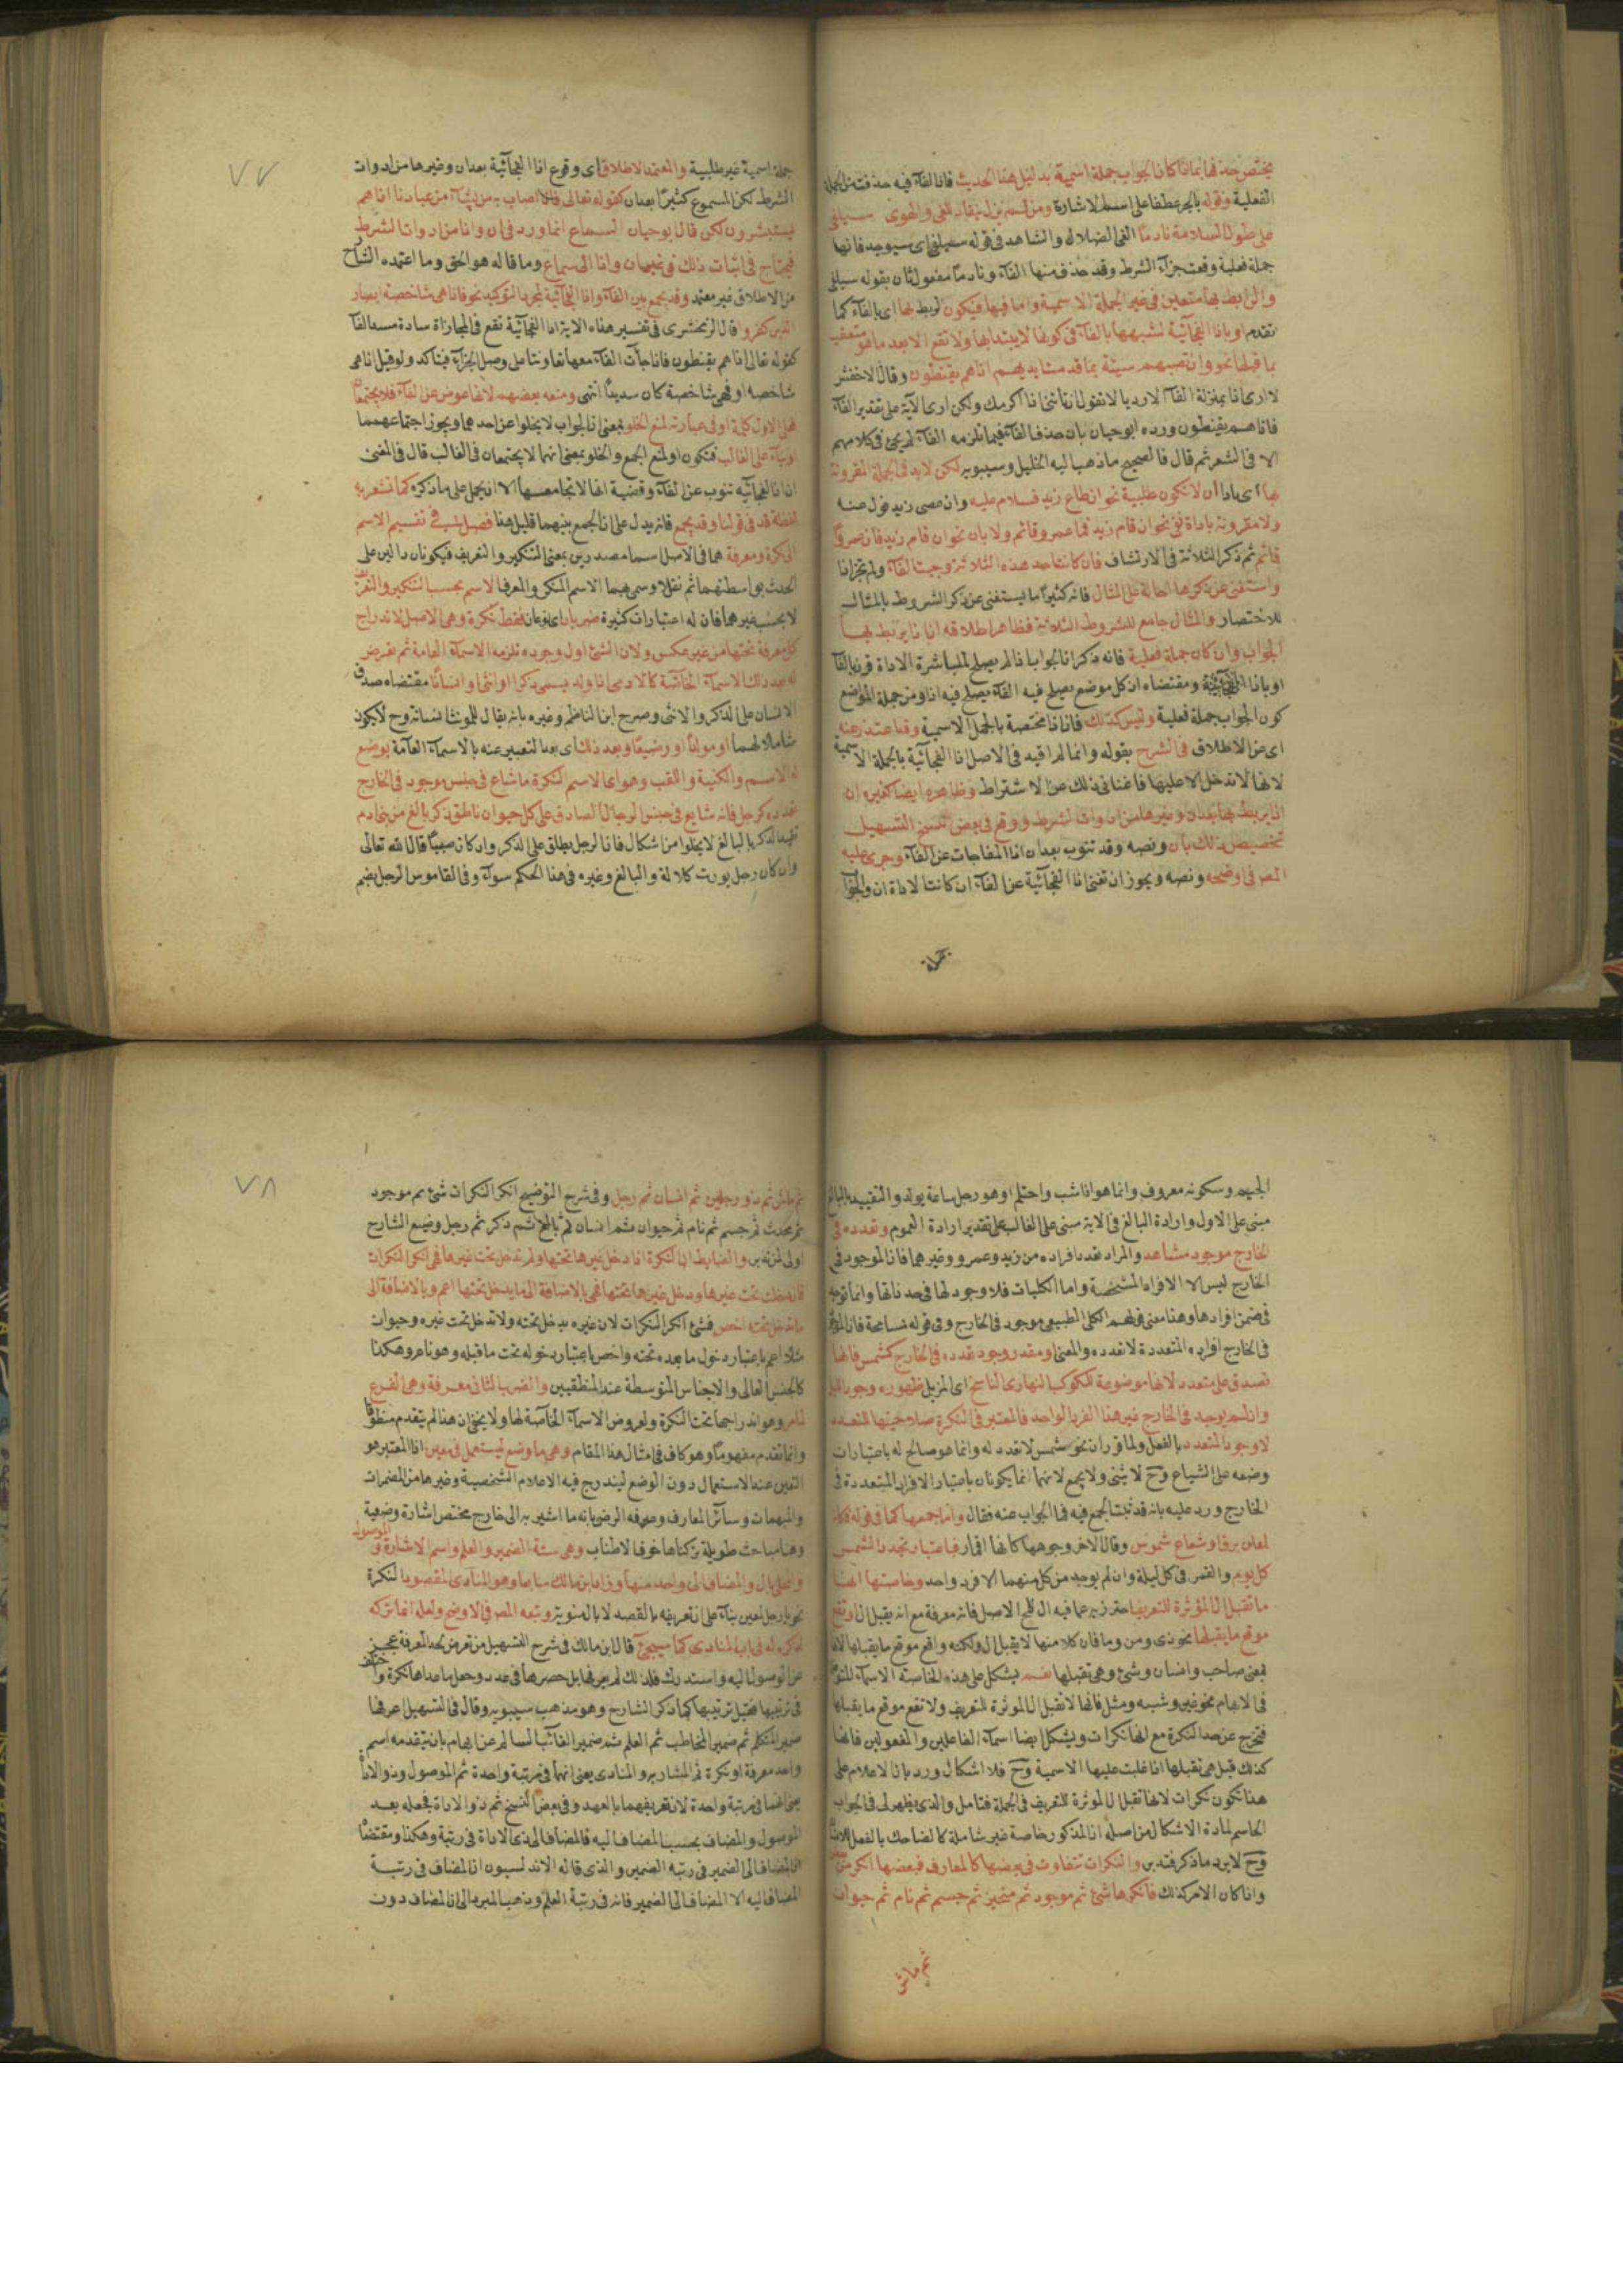 يختص حذفها بما اذا كان الجواب جملة اسمية بدليل هذا الحديث فان الفآء فيه حذفت من الجملة
الفعلية وقوله بالجر عطفا على اسم الاشارة ومن لم يزل ينقاد للغى والهوى سيلفى
على طول السلامة نادما الغى الضلال والشاهد فى قوله سيلفى اى سيوجد فانها
جملة فعلية وقعت جزآء الشرط وقد حذف منها الفآء ونادمًا مفعول ثان بقوله سيلفى
والرابط بها متعين فى غير الجملة الاسمية واما فيها فيكون الربط بها اى بالفآء كما
تقدم او باذا الفجآئية لشبهها بالفآء فى كونها لا يبتدا بها ولا تقع الا بعد ما هو متعقب
بما قبلها نحو وان تصبهم سيئة بما قدمت ايديهم اذا هم يقنطون وقال الاخفش
لا ارى اذا بمنزلة الفآء لا رديا لا تقول ان تاتنى اذا اكرمك ولكن ارى الآية على تقدير الفآء
فاذا هم يقنطون ورده ابو حيان بان حذف الفآء فيما تلزمه الفآء لم يجئ فى كلامهم
الا فى الشعر ثم قال فالصحيح ما ذهب اليه الخليل وسيبويه لكن لابد فى الجملة المقرونة
بها اى باذا ان لا تكون طلبية نحو ان طاع زيد فسلام عليه وان عصى زيد فول عنه
ولا مقرونة باداة نفى نحو ان قام زيد فما عمرو قائم ولا بان نحو ان قام زيد فان عمروًا
قائم ثم ذكر الثلاثة فى الارتشاف فان كانت احد هذه الثلاثة وجبت الفآء ولم تجز اذا
واستغنى عن ذكرها احالة على المثال فانه كثيرًا ما يستغنى عن ذكر الشروط بالمثال
للاختصار والمثال جامع للشروط الثلاثة فظاهر اطلاقه ان اذا يربط بها
الجواب وان كان جملة فعلية فانه ذكر ان الجواب اذا لم يصلح لمباشرة الاداة قرن بالفآ
او باذا الفجآئية ومقتضاه ان كل موضع يصلح فيه الفآء يصلح فيه اذا ومن جملة المواضع
كون الجواب جملة فعلية وليس كذلك فان اذا مختصة بالجمل الاسمية وقد اعتذر عنه
اى عن الاطلاق فى الشرح بقوله وانما لم اقيد فى الاصل اذا الفجآئية بالجملة الاسمية
لانها لا تدخل الا عليها فاغنانى ذلك عن الاشتراط وظاهره ايضا كغيره ان
اذا يربط بها بعد ان وغيرها من ادوات الشرط ووقع فى بعض نسخ التسهيل
تخصيص ذلك بان ونصه وقد تنوب بعد ان اذا المفاجات عن الفآء وجرى عليه
المص فى اوضحه ونصه ويجوز ان تغنى اذا الفجآئية عن الفآء ان كانت الاداة ان والجوآ
جملة
٧٧
جملة اسمية غير طلبية والمعتمد الاطلاق اى وقوع اذا الفجآئية بعد ان وغيرها من ادوات
الشرط لكن المسموع كثيرًا بعد ان كقوله تعالى فاذا اصاب به من يشآء من عبادنا اذا هم
يستبشرون لكن قال ابو حيان السماع انما ورد فى ان واذا من ادوات الشرط
فيحتاج فى اثبات ذلك فى غير ان واذا الى سماع وما قاله هو الحق وما اعتمده الشارح
من الاطلاق غير معتمد وقد يجمع بين الفآء واذا الفجآئية لمجرد التوكيد نحو فاذا هى شاخصة ابصار
الذين كفروا قال الزمخشرى فى تفسير هذه الاية اذا الفجآئية تقع فى المجازاة سادة مسد الفآ
كقوله تعالى اذا هم يقنطون فاذا جآءت الفآء معها تعاونتا على وصل الجزآء فيتاكد ولو قيل اذا هى
شاخصة او فهى شاخصة كان سديدًا انتهى ومنعه بعضهم لانها عوض عن الفآء فلا يجتمعا
فعلى الاول كلمة او فى عبارته لمنع الخلو بمعنى ان الجواب لا يخلوا عن احدهما ويجوز اجتماعهما
او بنآء على الغالب فتكون او لمنع الجمع والخلو بمعنى انهما لا يجتمعان فى الغالب قال فى المغنى
ان اذا الفجآئية تنوب عن الفآء وقضية انها لا تجامعها الا ان يحمل على ما ذكره كما تشعر به
لفظة قد فى قولنا وقد يجمع فانه يدل على ان الجمع بينهما قليل هنا فصل فى تقسيم الاسم
الى نكرة ومعرفة هما فى الاصل اسما مصدرين بمعنى التنكير والتعريف فيكونان دالين على
الحدث بواسطتهما ثم نقلا وسمى بهما الاسم المنكر والمعرف الاسم بحسب التنكير والتعريف
لا بحسب غيرهما فان له اعتبارات كثيرة ضربان اى نوعان فقط نكرة وهى الاصل لاندراج
كل معرفة تحتها من غير عكس ولان الشئ اول وجوده تلزمه الاسمآء العامة ثم تعرض
له بعد ذلك الاسمآء الخاصة كالادمى اذا ولد يسمى ذكرا او انثى وانسانًا مقتضاه صدق
الانسان على الذكر والانثى وصرح ابن الناظم وغيره بانه يقال للمونث انسانة وح لا يكون
شاملا لهما او مولودًا او رضيعًا وبعد ذلك اى بعد التعبير عنه بالاسمآء العامة يوضع
له الاسم والكنية واللقب وهو اى الاسم النكرة ما شاع فى جنس موجود فى الخارج
تعدده كرجل فانه شايع فى جنس الرجال الصادق على كل حيوان ناطق ذكر بالغ من بنى ادم
تقييد الذكر بالبالغ لا يخلوا من اشكال فان الرجل يطلق على الذكر وان كان صبيًا قال الله تعالى
وان كان رجل يورث كلالة والبالغ وغيره فى هذا الحكم سوآء وفى القاموس الرجل بضم
الجيم وسكونه معروف وانما هو اذا شب واحتلم او هو رجل ساعة يولد والتقييد بالبالغ
مبنى على الاول وارادة البالغ فى الاية مبنى على الغالب على تقدير ارادة العموم وتعدده فى
الخارج موجود مشاهد والمراد تعدد افراده من زيد وعمرو وغيرهما فان الموجود فى
الخارج ليس الا الافراد المشخصة واما الكليات فلا وجود لها فى حد ذاتها وانما توجد
فى ضمن افرادها وهذا معنى قولهم الكلى الطبيعى موجود فى الخارج وفى قوله تسامحة فان الموجود
فى الخارج افراده المتعددة لا تعدده والمعنى او مقدر وجود تعدده فى الخارج كشمس فانها
تصدق على متعدد لانها موضوعة للكوكب النهارى الناسخ اى المزيل ظهوره وجود الليل
وان لم يوجد فى الخارج غير هذا الفرد الواحد فالمعتبر فى النكرة صلاحيتها للتعدد
لا وجود المتعدد بالفعل ولما قرر ان نحو شمس لا تعدد له وانما هو صالح له باعتبارات
وضعه على الشياع وح لا يثنى ولا يجمع لانهما انما يكونان باعتبار الافراد المتعددة فى
الخارج ورد عليه بانه قد ثبت الجمع فيه فما الجواب عنه فقال واما جمعها كما فى قوله فكانه
لمعان برق او شعاع شموس وقال الاخر وجوهها كانها اقمار فباعتبار تجدد الشمس
كل يوم والقمر فى كل ليلة وان لم يوجد من كل منهما الا فرد واحد وخاصتها انها
ما تقبل ال المؤثرة للتعريف احترز به عما فيه ال للمح الاصل فانه معرفة مع انه يقبل ال او تقع
موقع ما يقبلها نحو ذى ومن وما فان كلا منها لا يقبل ال ولكنه واقع موقع ما يقبلها لانها
بمعنى صاحب وانسان وشئ وهى تقبلها نعم يشكل على هذه الخاصة الاسمآء المتوغلة
فى الابهام نحو غير وشبه ومثل فانها لا تقبل ال المؤثرة للتعريف ولا تقع موقع ما يقبلها
فتخرج عن حد النكرة مع انها نكرات ويشكل ايضا اسمآء الفاعلين والمفعولين فانها
كذلك قيل هى تقبلها اذا غلبت عليها الاسمية وح فلا اشكال ورد بان الاعلام على
هذا تكون نكرات لانها تقبل ال المؤثرة للتعريف فى الجملة فتامل والذى يظهر لى فى الجواب
الحاسم لمادة الاشكال من اصله ان المذكور خاصة غير شاملة كالضاحك بالفعل للانسان
وح لا يرد ما ذكر فتدبر والنكرات تتفاوت فى بعضها كالمعارف فبعضها انكر من بعض
واذا كان الامر كذلك فانكرها شئ ثم موجود ثم متحيز ثم جسم ثم نام ثم حيوان
ثم ماش
٧٨
ثم ماش ثم ذو رجلين ثم انسان ثم رجل وفى شرح التوضيح انكر النكرات شئ ثم موجود
ثم محدث ثم جسم ثم نام ثم حيوان ثم انسان ثم بالغ ثم ذكر ثم رجل وصنع الشارح
اولى لمن تدبر والضابط ان النكرة اذا دخل غيرها تحتها ولم تدخل تحت غيرها فهى انكر النكرات
فان دخلت تحت غيرها ودخل غيرها تحتها فهى بالاضافة الى ما يدخل تحتها اعم وبالاضافة الى
ما تدخل تحته اخص فشئ انكر النكرات لان غيره يدخل تحته ولا تدخل تحت غيره وحيوان
مثلا اعم باعتبار دخول ما بعده تحته واخص باعتبار دخوله تحت ما قبله وهو نام وهكذا
كالجنس العالى والاجناس المتوسطة عند المنطقيين والضرب الثانى معرفة وهى الفرع
لما مر وهو اندراجها تحت النكرة ولعروض الاسمآء الخاصة لها ولا يخفى ان هذا لم يتقدم منطوقا
وانما تقدم مفهومًا وهو كاف فى امثال هذا المقام وهى ما وضع ليستعمل فى معين اذ المعتبر هو
التعين عند الاستعمال دون الوضع ليندرج فيه الاعلام الشخصية وغيرها من المضمرات
والمبهمات وسآئر المعارف وعرفه الرضى بانه ما اشير به الى خارج مختص اشارة وضعية
وهنا مباحث طويلة تركناها خوف الاطناب وهى ستة الضمير والعلم واسم الاشارة والموصول
والمحلى بال والمضاف الى واحد منها وزاد ابن مالك سابعا وهو المنادى المقصود النكرة
نحو يا رجل لمعين بنآء على ان تعريفه بالقصد لا بال منوية وتبعه المص فى الاوضح ولعله انما تركه
لذكره له فى باب المنادى كما سيجئ قال ابن مالك فى شرح التسهيل من تعرض لحد المعرفة عجز
عن الوصول اليه واستدرك فلذلك لم يعرفها بل حصرها فى عدد وجعل ما عداها نكرة واختلف
فى ترتيبها فقيل ترتيبها كما ذكر الشارح وهو مذهب سيبويه وقال فى التسهيل اعرفها
ضمير المتكلم ثم ضمير المخاطب ثم العلم ثم ضمير الغائب السالم عن ابهام بان يتقدمه اسم
واحد معرفة او نكرة ثم المشار به والمنادى يعنى انهما فى مرتبة واحدة ثم الموصول وذو الاداة
يعنى انهما فى مرتبة واحدة لان تعريفهما بالعهد وفى بعض النسخ ثم ذو الاداة فجعله بعد
الموصول والمضاف بحسب المضاف اليه فالمضاف الى ذى الاداة فى رتبة وهكذا ومقتضاه
ان المضاف الى الضمير فى رتبة الضمير والذى قاله الاندلسيون ان المضاف فى رتبة
المضاف اليه الا المضاف الى الضمير فانه فى رتبة العلم وذهب المبرد الى ان المضاف دون